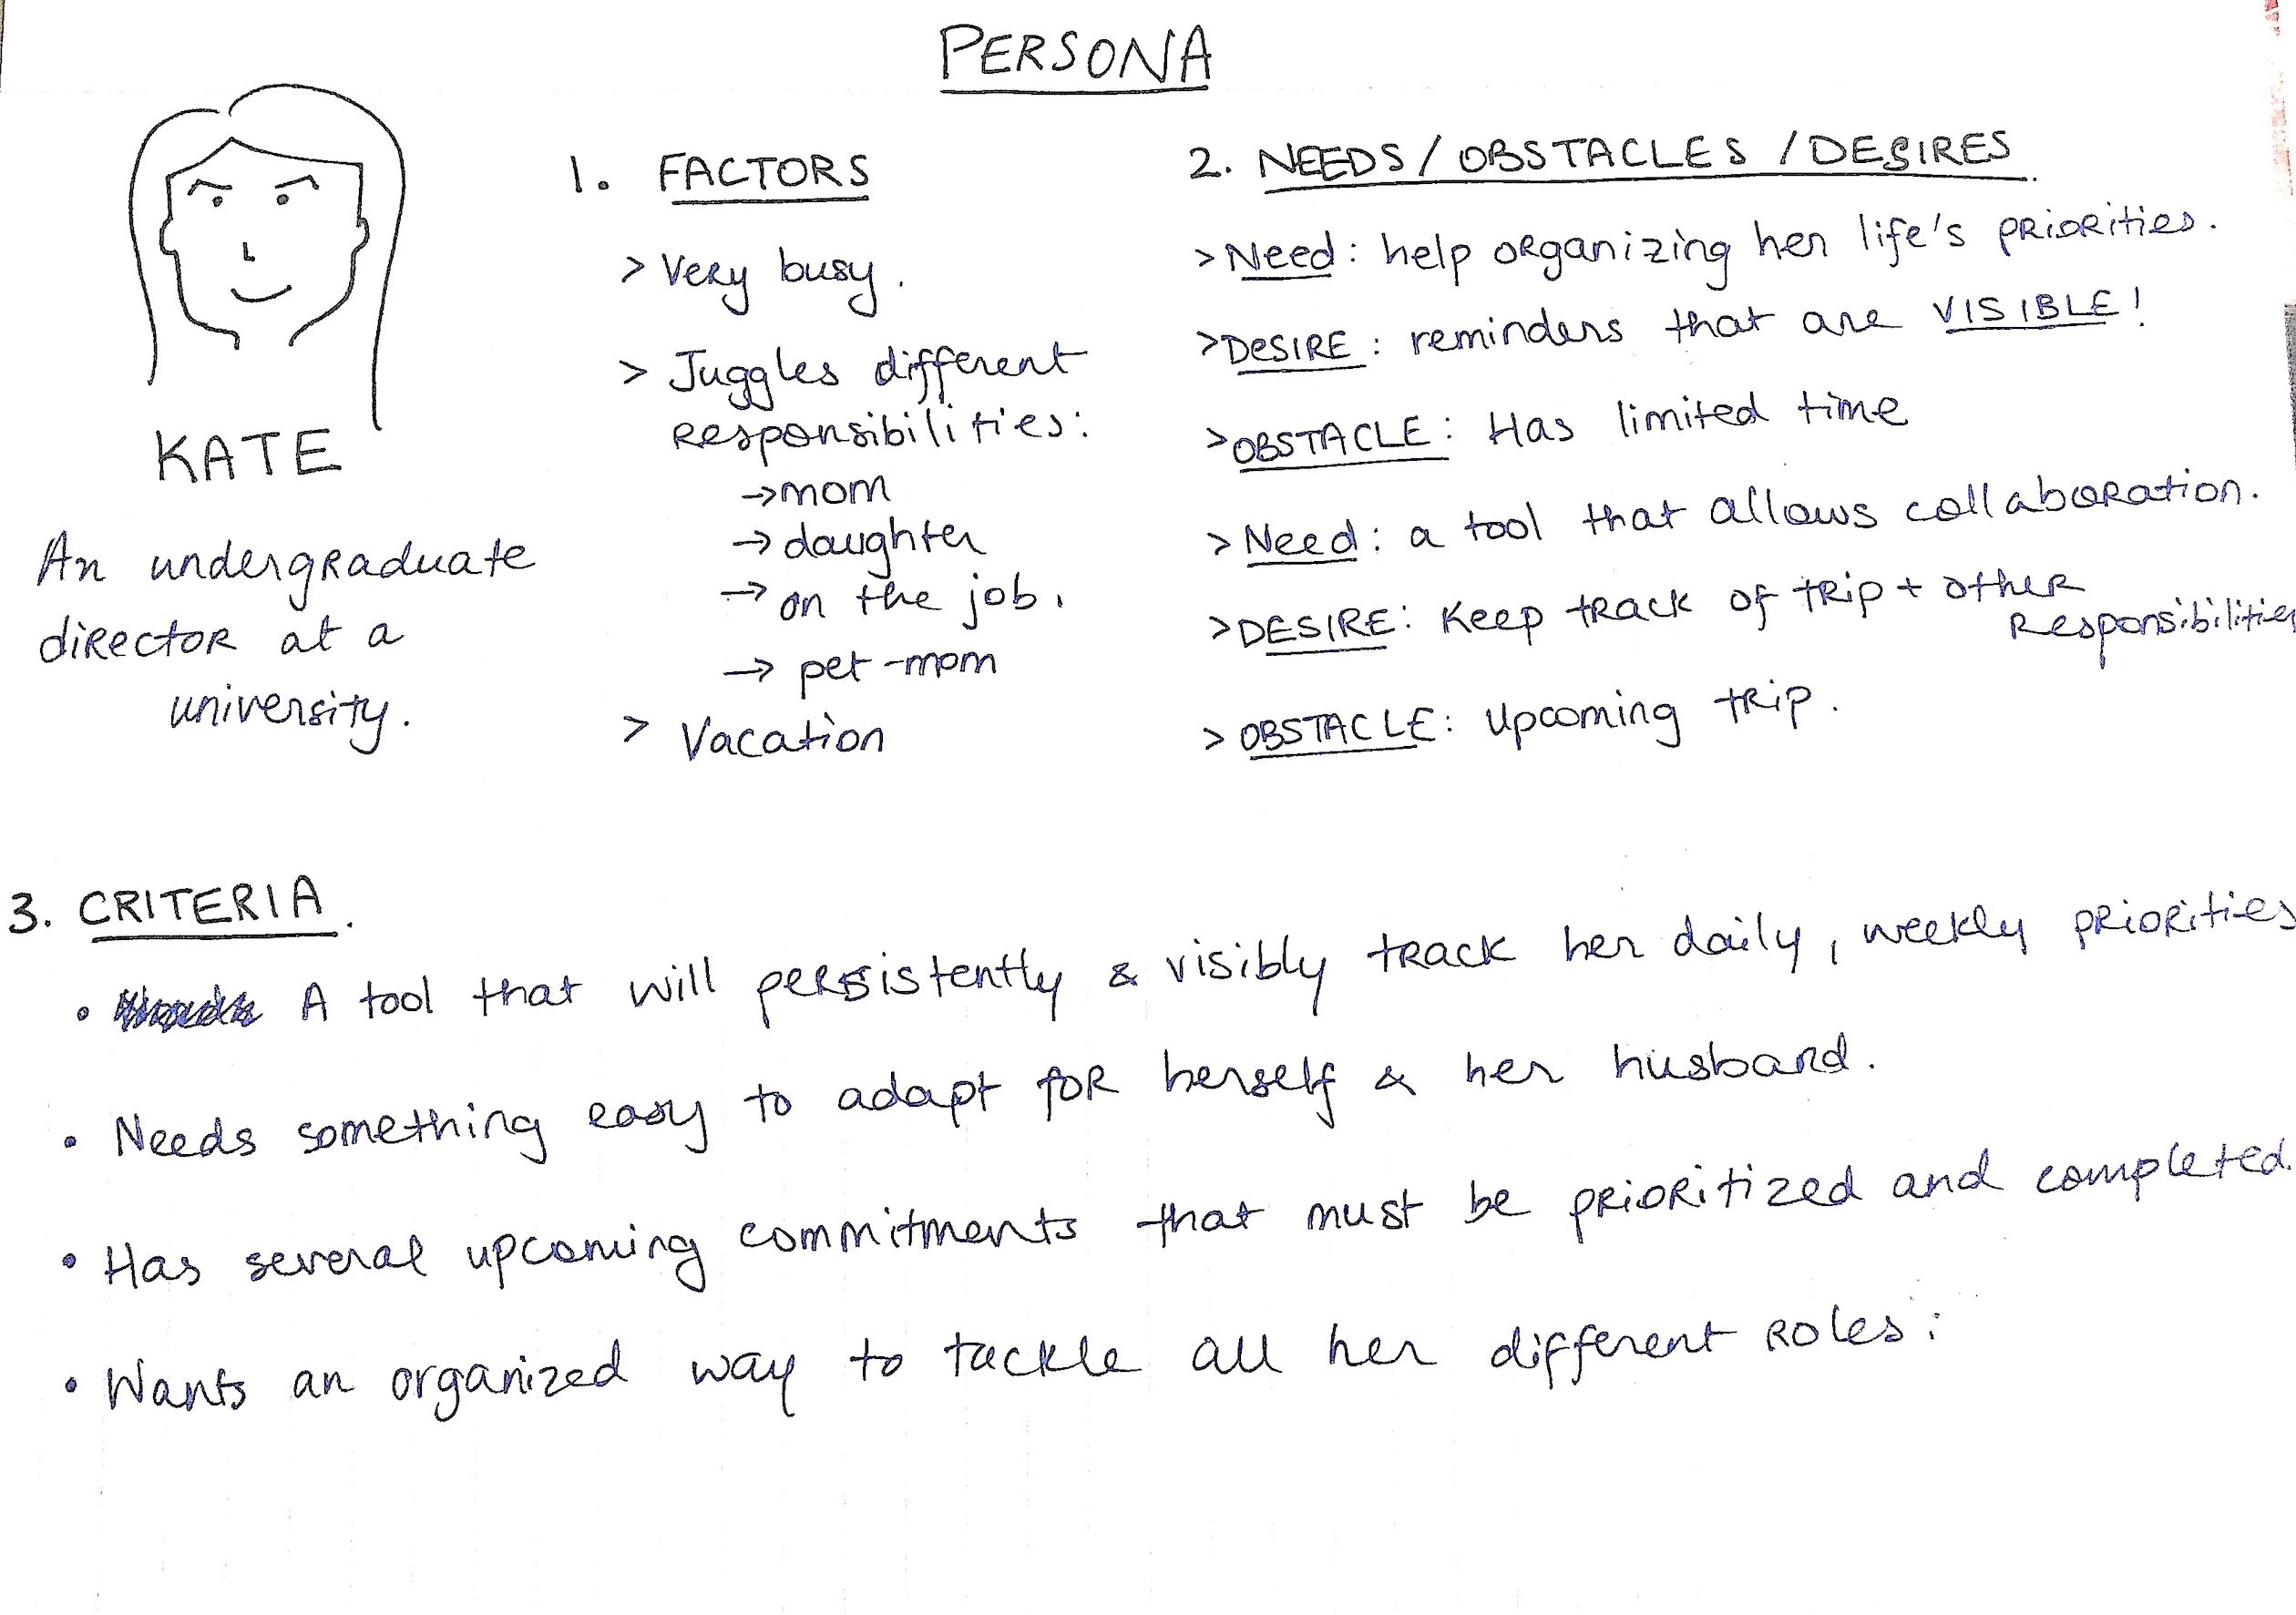 PERSONA
KATE
An undergraduate
director at a
university.
1. FACTORS
> Very busy.
> Juggles different
responsibilities:
→ mom
→ daughter
→ on the job.
→ pet-mom
> Vacation
2. NEEDS/OBSTACLES/DESIRES
> Need: help organizing her life's priorities.
> DESIRE: reminders that are VISIBLE!
> OBSTACLE: Has limited time
> Need: a tool that allows collaboration.
> DESIRE: Keep track of trip + other
Responsibilities
> OBSTACLE: upcoming trip.
3. CRITERIA.
• A tool that will persistently & visibly track her daily, weekly priorities
• Needs something easy to adapt for herself & her husband.
• Has several upcoming commitments that must be prioritized and completed.
• Wants an organized way to tackle all her different roles: